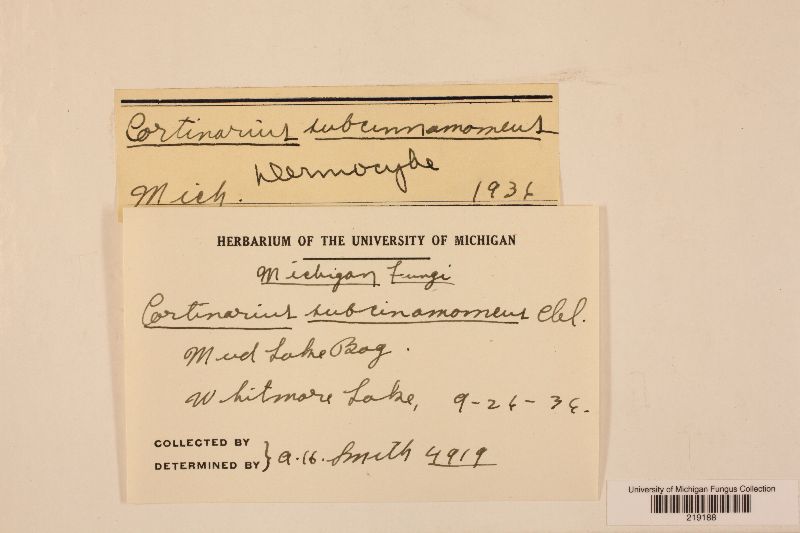 Cortinarius subcinnamomeus
Dermocybe
Mich. 1936
HERBARIUM OF THE UNIVERSITY OF MICHIGAN
Michigan Fungi
Cortinarius subcinamomeus
Mud Lake Bog.
Whitmore Lake, 9-26-36.
COLLECTED BY
DETERMINED BY } A. H. Smith 4919
University of Michigan Fungus Collection
219188